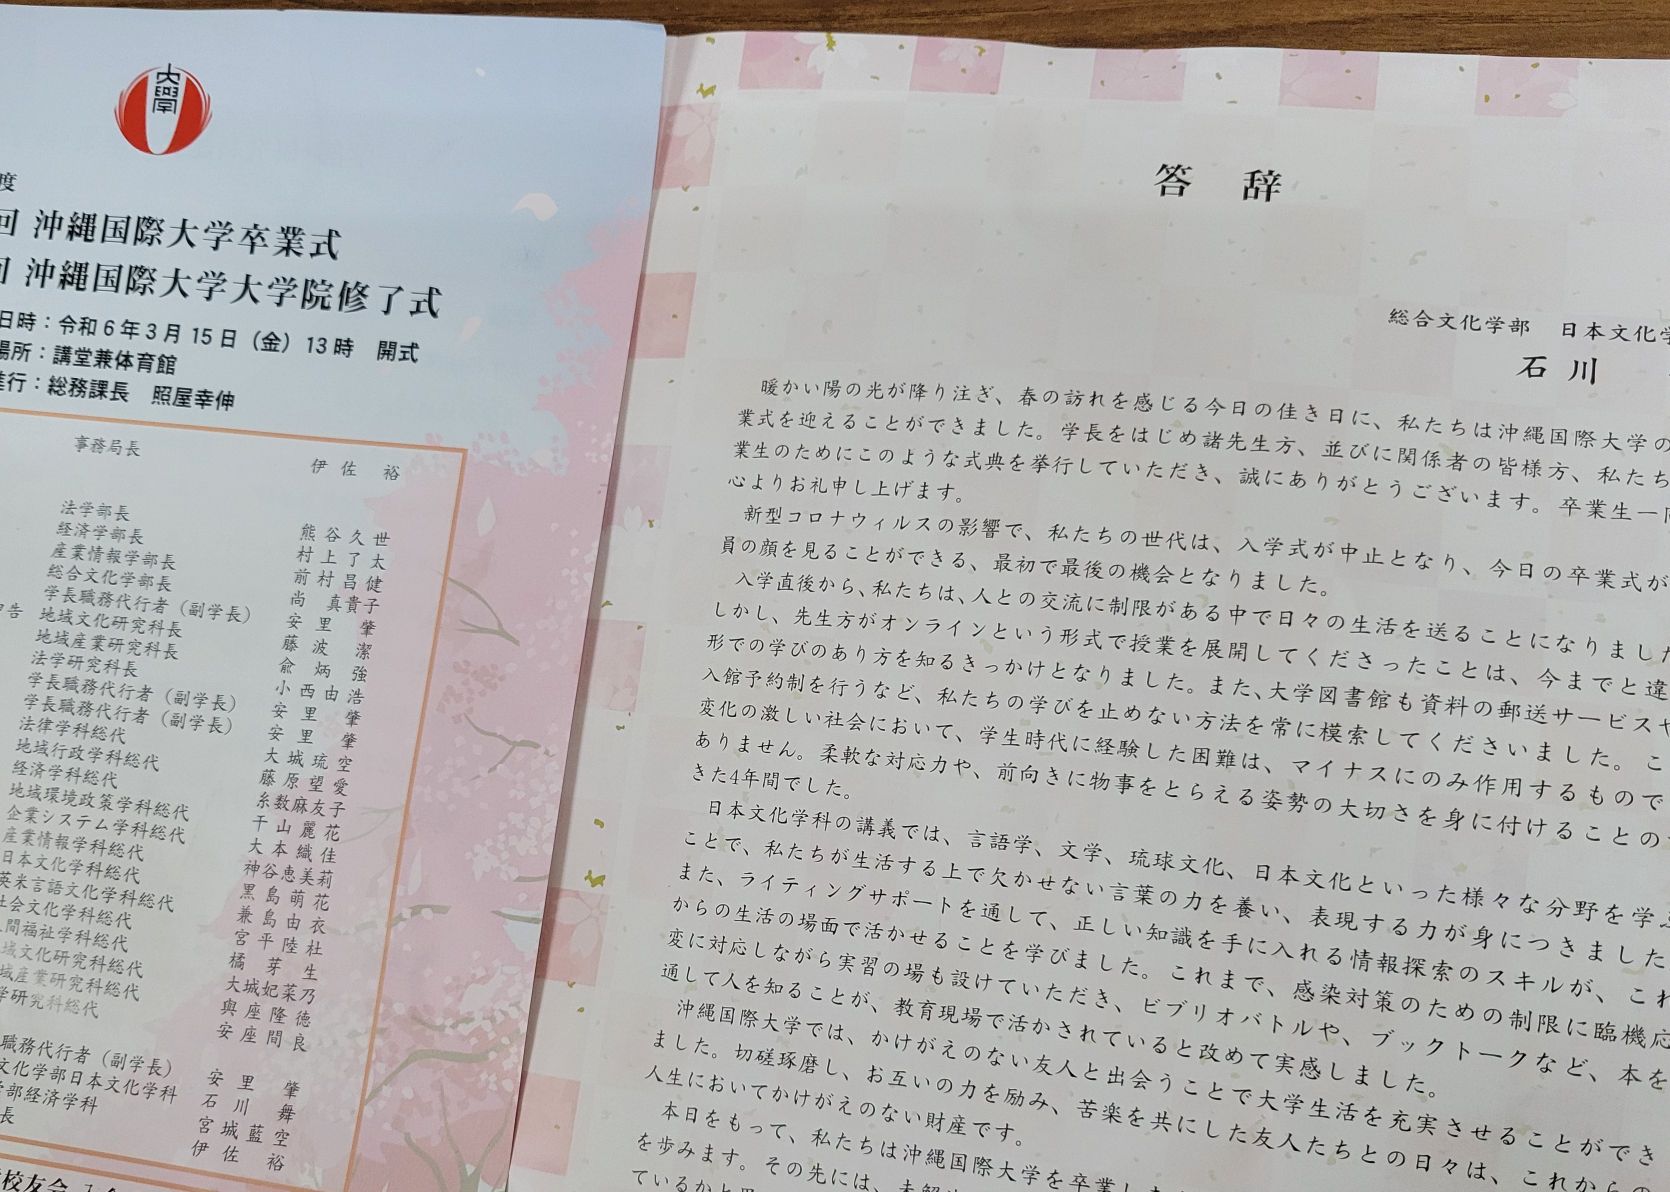 大學
度
回 沖縄国際大学卒業式
回 沖縄国際大学大学院修了式
日時：令和6年3月15日（金）13時　開式
場所：講堂兼体育館
進行：総務課長　照屋幸伸
事務局長　伊佐　裕
法学部長　熊谷久世
経済学部長　村上了太
産業情報学部長　前村昌健
総合文化学部長　尚真貴子
学長職務代行者（副学長）　安里肇
申告　地域文化研究科長　藤波潔
地域産業研究科長　兪炳強
法学研究科長　小西由浩
学長職務代行者（副学長）　安里肇
学長職務代行者（副学長）　安里肇
法律学科総代　大城琉空
地域行政学科総代　藤原望愛
経済学科総代　糸数麻友子
地域環境政策学科総代　干山麗花
企業システム学科総代　大本織佳
産業情報学科総代　神谷恵美莉
日本文化学科総代　黒島萌花
英米言語文化学科総代　兼島由衣
社会文化学科総代　宮平陸杜
人間福祉学科総代　橘芽生
域文化研究科総代　大城妃菜乃
域産業研究科総代　與座隆徳
学研究科総代　安座間良
職務代行者（副学長）　安里肇
文化学部日本文化学科　石川舞
学部経済学科　宮城藍空
長　伊佐裕
校友会
答辞
総合文化学部　日本文化学
石川
暖かい陽の光が降り注ぎ、春の訪れを感じる今日の佳き日に、私たちは沖縄国際大学の
業式を迎えることができました。学長をはじめ諸先生方、並びに関係者の皆様方、私たち
業生のためにこのような式典を挙行していただき、誠にありがとうございます。卒業生一同
心よりお礼申し上げます。
新型コロナウィルスの影響で、私たちの世代は、入学式が中止となり、今日の卒業式が
員の顔を見ることができる、最初で最後の機会となりました。
入学直後から、私たちは、人との交流に制限がある中で日々の生活を送ることになりました
しかし、先生方がオンラインという形式で授業を展開してくださったことは、今までと違
形での学びのあり方を知るきっかけとなりました。また、大学図書館も資料の郵送サービスや
入館予約制を行うなど、私たちの学びを止めない方法を常に模索してくださいました。こ
変化の激しい社会において、学生時代に経験した困難は、マイナスにのみ作用するもので
ありません。柔軟な対応力や、前向きに物事をとらえる姿勢の大切さを身に付けることの
きた4年間でした。
日本文化学科の講義では、言語学、文学、琉球文化、日本文化といった様々な分野を学ぶ
ことで、私たちが生活する上で欠かせない言葉の力を養い、表現する力が身につきました
また、ライティングサポートを通して、正しい知識を手に入れる情報探索のスキルが、これ
からの生活の場面で活かせることを学びました。これまで、感染対策のための制限に臨機応
変に対応しながら実習の場も設けていただき、ビブリオバトルや、ブックトークなど、本を
通して人を知ることが、教育現場で活かされていると改めて実感しました。
沖縄国際大学では、かけがえのない友人と出会うことで大学生活を充実させることができ
ました。切磋琢磨し、お互いの力を励み、苦楽を共にした友人たちとの日々は、これからの
人生においてかけがえのない財産です。
本日をもって、私たちは沖縄国際大学を卒業し
を歩みます。その先には、
ているかと